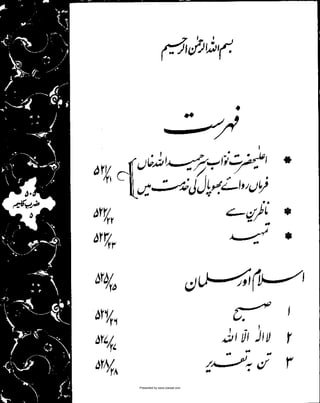 بسم اللہ الرحمٰن الرحیم
فہرست
* اعلیٰحضرت نواب سر حمید اللہ خاں
فرماں روائے بھوپال کی خدمت میں ۵۲۱/۲۱
* ناظرین سے ۵۲۲/۲۲
* تمہید ۵۲۳/۲۳
۵۰۵
ضرب کلیم
۵
اسلام اور مسلمان ۵۲۵/۲۵
۱ صبح ۵۲۶/۲۶
۲ لا الٰہ الّا اللہ ۵۲۷/۲۷
۳ تن بہ تقدیر ۵۲۸/۲۸
Presented by www.iqbalat.com